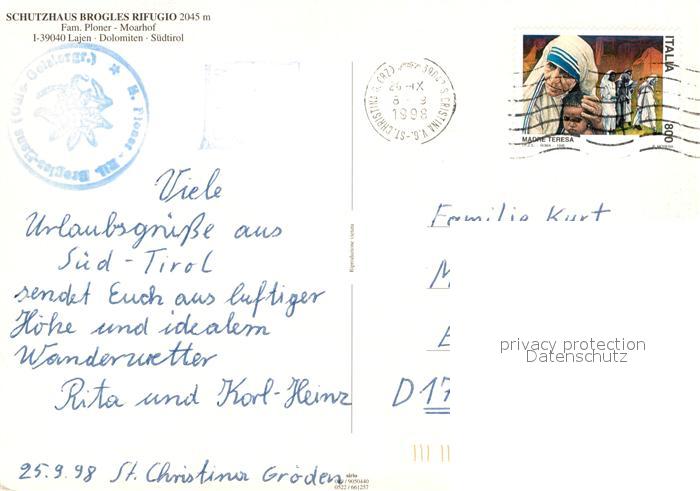 SCHUTZHAUS BROGLES RIFUGIO 2045 m
Fam. Ploner - Moarhof
I-39040 Lajen · Dolomiten · Südtirol
26-IX
8-9
1998
ITALIA
800
MADRE TERESA
Viele
Urlaubsgrüße aus
Süd-Tirol
sendet Euch aus luftiger
Höhe und idealem
Wanderwetter
Rita und Karl-Heinz
25.9.98 St. Christina Gröden
Riproduzione vietata
Familie Kurt
M
D 17
privacy protection
Datenschutz